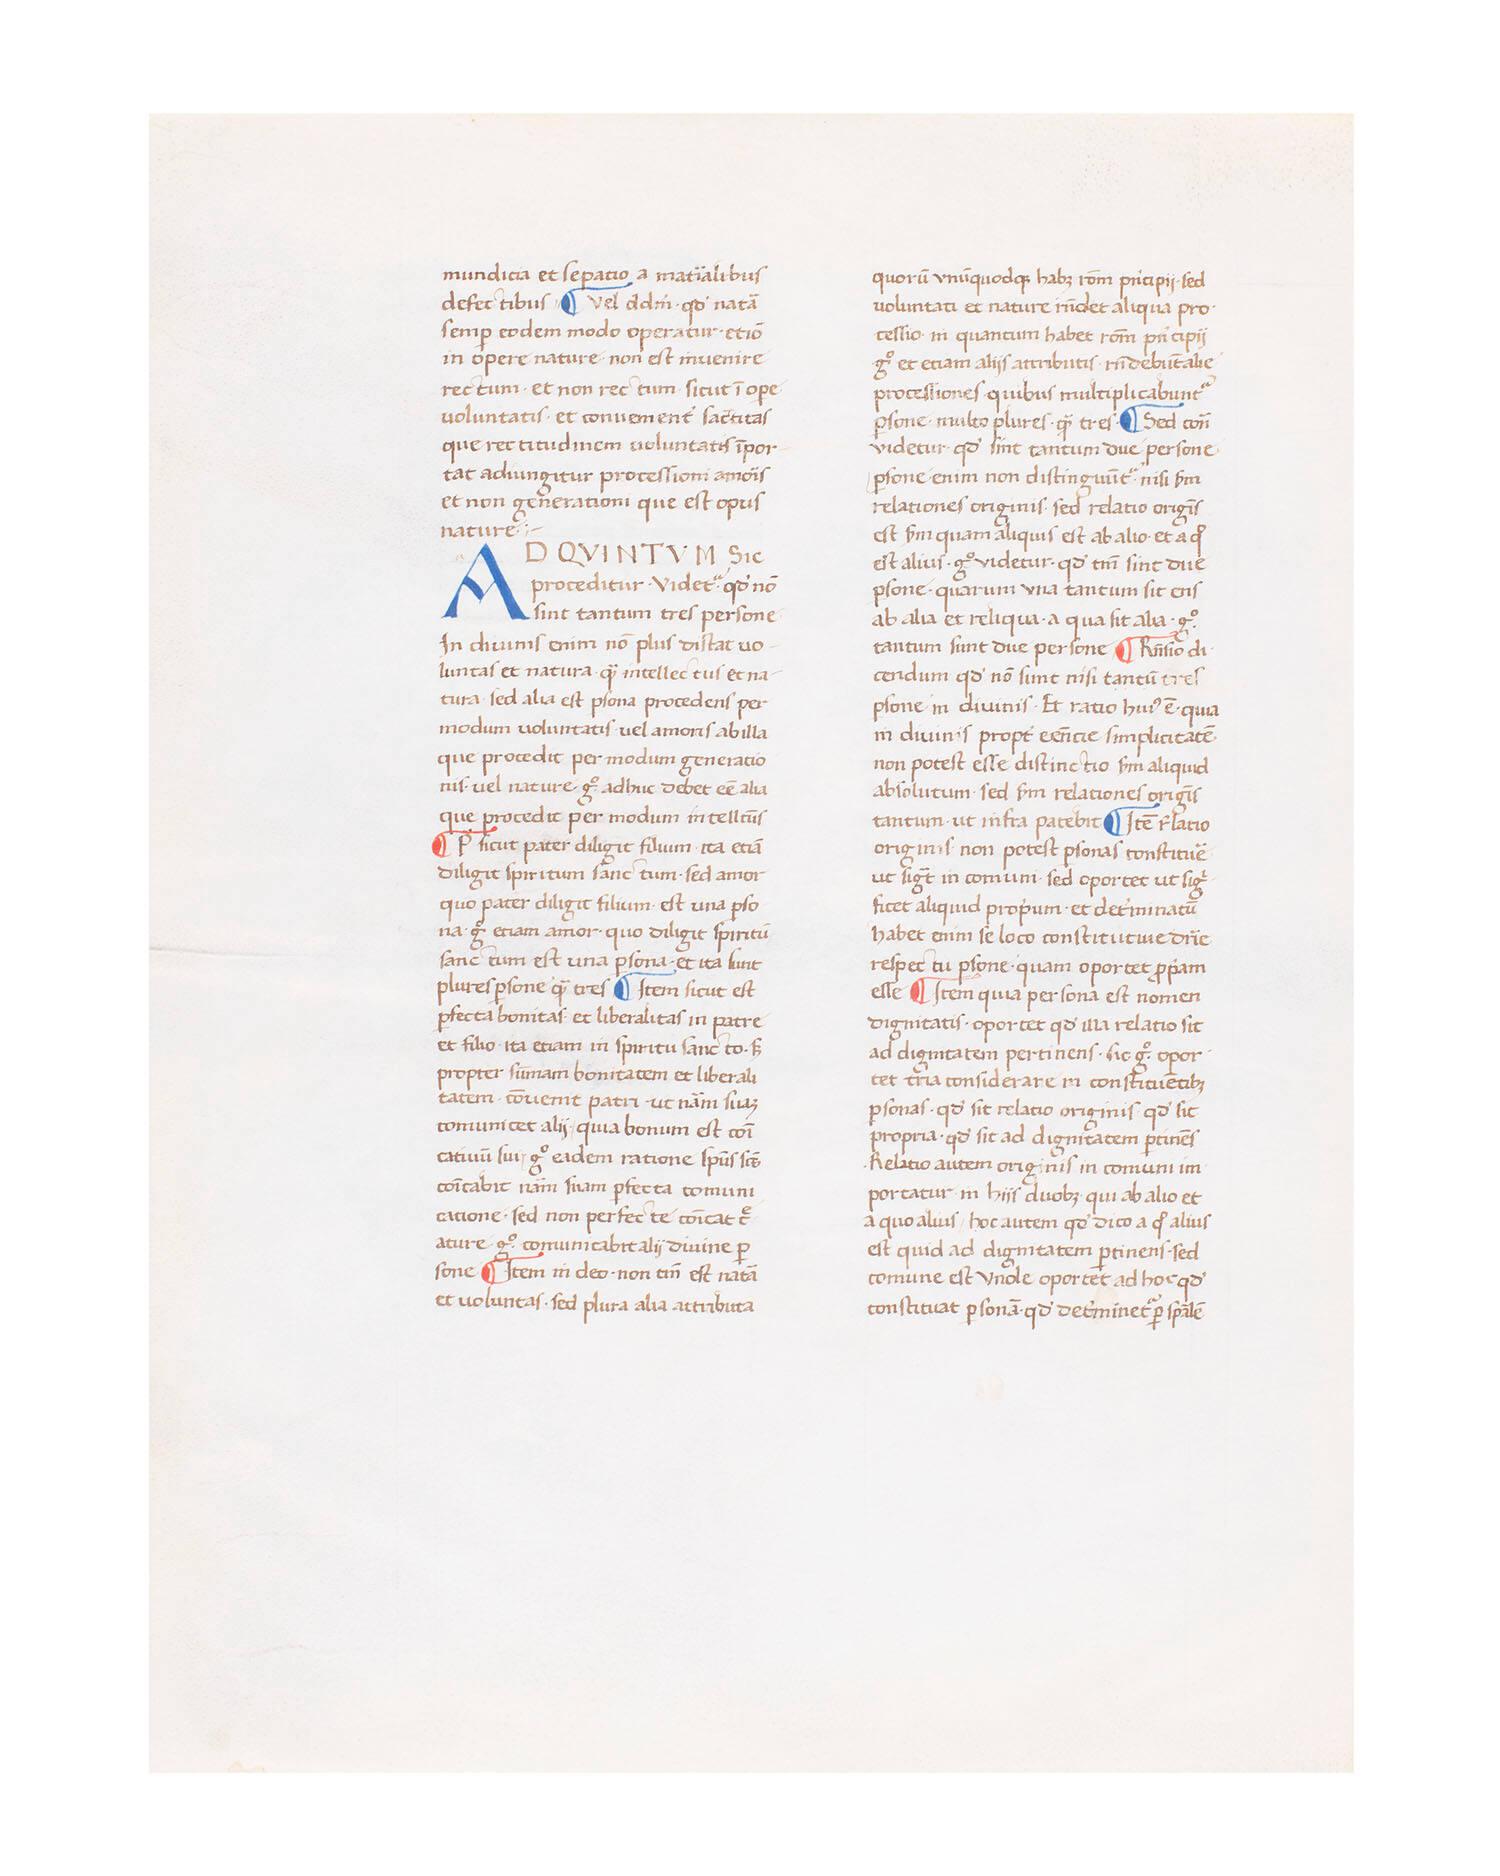 mundicia et sepatio a mat̃ialibus
defectibus ¶ Vel dđm̃· qđ natã
semꝑ eodem modo operatur· etiõ
in opere nature· non est inuenire
rectum· et non rectum· sicut ĩ ope
uoluntatis· et conuenient̃ sac̃titas
que rectitudinem uoluntatis ĩpor-
tat adiungitur processioni amoris
et non generationi que est opus
nature·:-
AD QVINTVM Sic
proceditur· Videtᵃ· qđ nõ
sint tantum tres persone
In diuinis enim nõ plus distat uo-
luntas et natura· ꝙ̃ intellectus et na-
tura· sed alia est ꝑsona procedens per
modum uoluntatis· uel amoris ab illa
que procedit per modum generatio
nis· uel nature· gͦ· adhuc debet eẽ alia
que procedit per modum intellect̃us
¶ P̃ sicut pater diligit filium· ita etiã
diligit spiritum sanctum· sed amor
quo pater diligit filium· est una ꝑso
na· gͦ etiam amor· quo diligit spiritũ
sanctum est una ꝑsona· et ita sunt
plures ꝑsone ꝙ̃ tres ¶ Item sicut est
ꝑfecta bonitas· et liberalitas in patre
et filio· ita etiam in spiritu sancto· S̃
propter sũmam bonitatem et liberali
tatem· cõuenit patri· ut nãm suaꝫ
comunicet alij/ quia bonum est coĩ
catiuũ sui/ gͦ eadem ratione sp̃us sc̃s
coĩcabit nãm suam ꝑfecta comuni
catione· sed non perfecte coĩcat c̃re
ature· gͦ· comunicabit alij diuine ꝑ
sone ¶ Item in deo· non tm̃ est natã
et uoluntas· sed plura alia attributa
quorũ vnũquodqꝫ habꝫ rõm pñcipij· sed
uoluntati et nature rñdet aliqua pro-
cessio· in quantum habet rõm pñcipij
gͦ et etiam alijs attributis· rñdebũt alie
processiones· quibus multiplicabuntᵃ
ꝑsone· multo plures· ꝙ̃ tres· ¶ Sed con̄
videtur· qđ sint tantum due persone
ꝑsone enim non distinguũtᵃ· nisi ẜm
relationes originis· sed relatio origĩs
est ẜm quam aliquis est ab alio· et a qͦ
est alius· gͦ videtur· qđ tm̃ sint due
ꝑsone· quarum vna tantum sit ens
ab alia et reliqua· a qua sit alia· gͦ·
tantum sunt due persone ¶ Rñsio di-
cendum qđ nõ sunt nisi tantũ tres
ꝑsone in diuinis· Et ratio hui⁹ ẽ· quia
in diuinis propt̃ eẽncie simplicitatẽ
non potest esse distinctio ẜm aliquid
absolutum· sed ẜm relationes origĩs
tantum· ut infra patebit ¶ Itẽ R̃latio
originis non potest ꝑsonas constituẽ
ut sig̃t in comuni· sed oportet ut sig̃i-
ficet aliquid prop̃um· et det̃minatũ
habet enim se loco constitutiue dr̃ie
respectu ꝑsone· quam oportet ꝓp̃am
esse ¶ Item quia persona est nomen
dignitatis· oportet qđ illa relatio sit
ad dignitatem pertinens· sic gͦ· opor-
tet tr̃ia considerare in constituẽtibꝫ
ꝑsonas· qđ sit relatio originis· qđ sit
propria· qđ sit ad dignitatem ꝑtinẽs
Relatio autem originis in comuni im
portatur in hijs duobꝫ· qui ab alio et
a quo alius/ hoc autem qđ dico a qͦ alius
est quid ad dignitatem ꝑtinens· sed
comune est Vnde oportet ad hoc qđ
constituat ꝑsonã· qđ det̃minetᵃ ꝑ sp̃alẽ